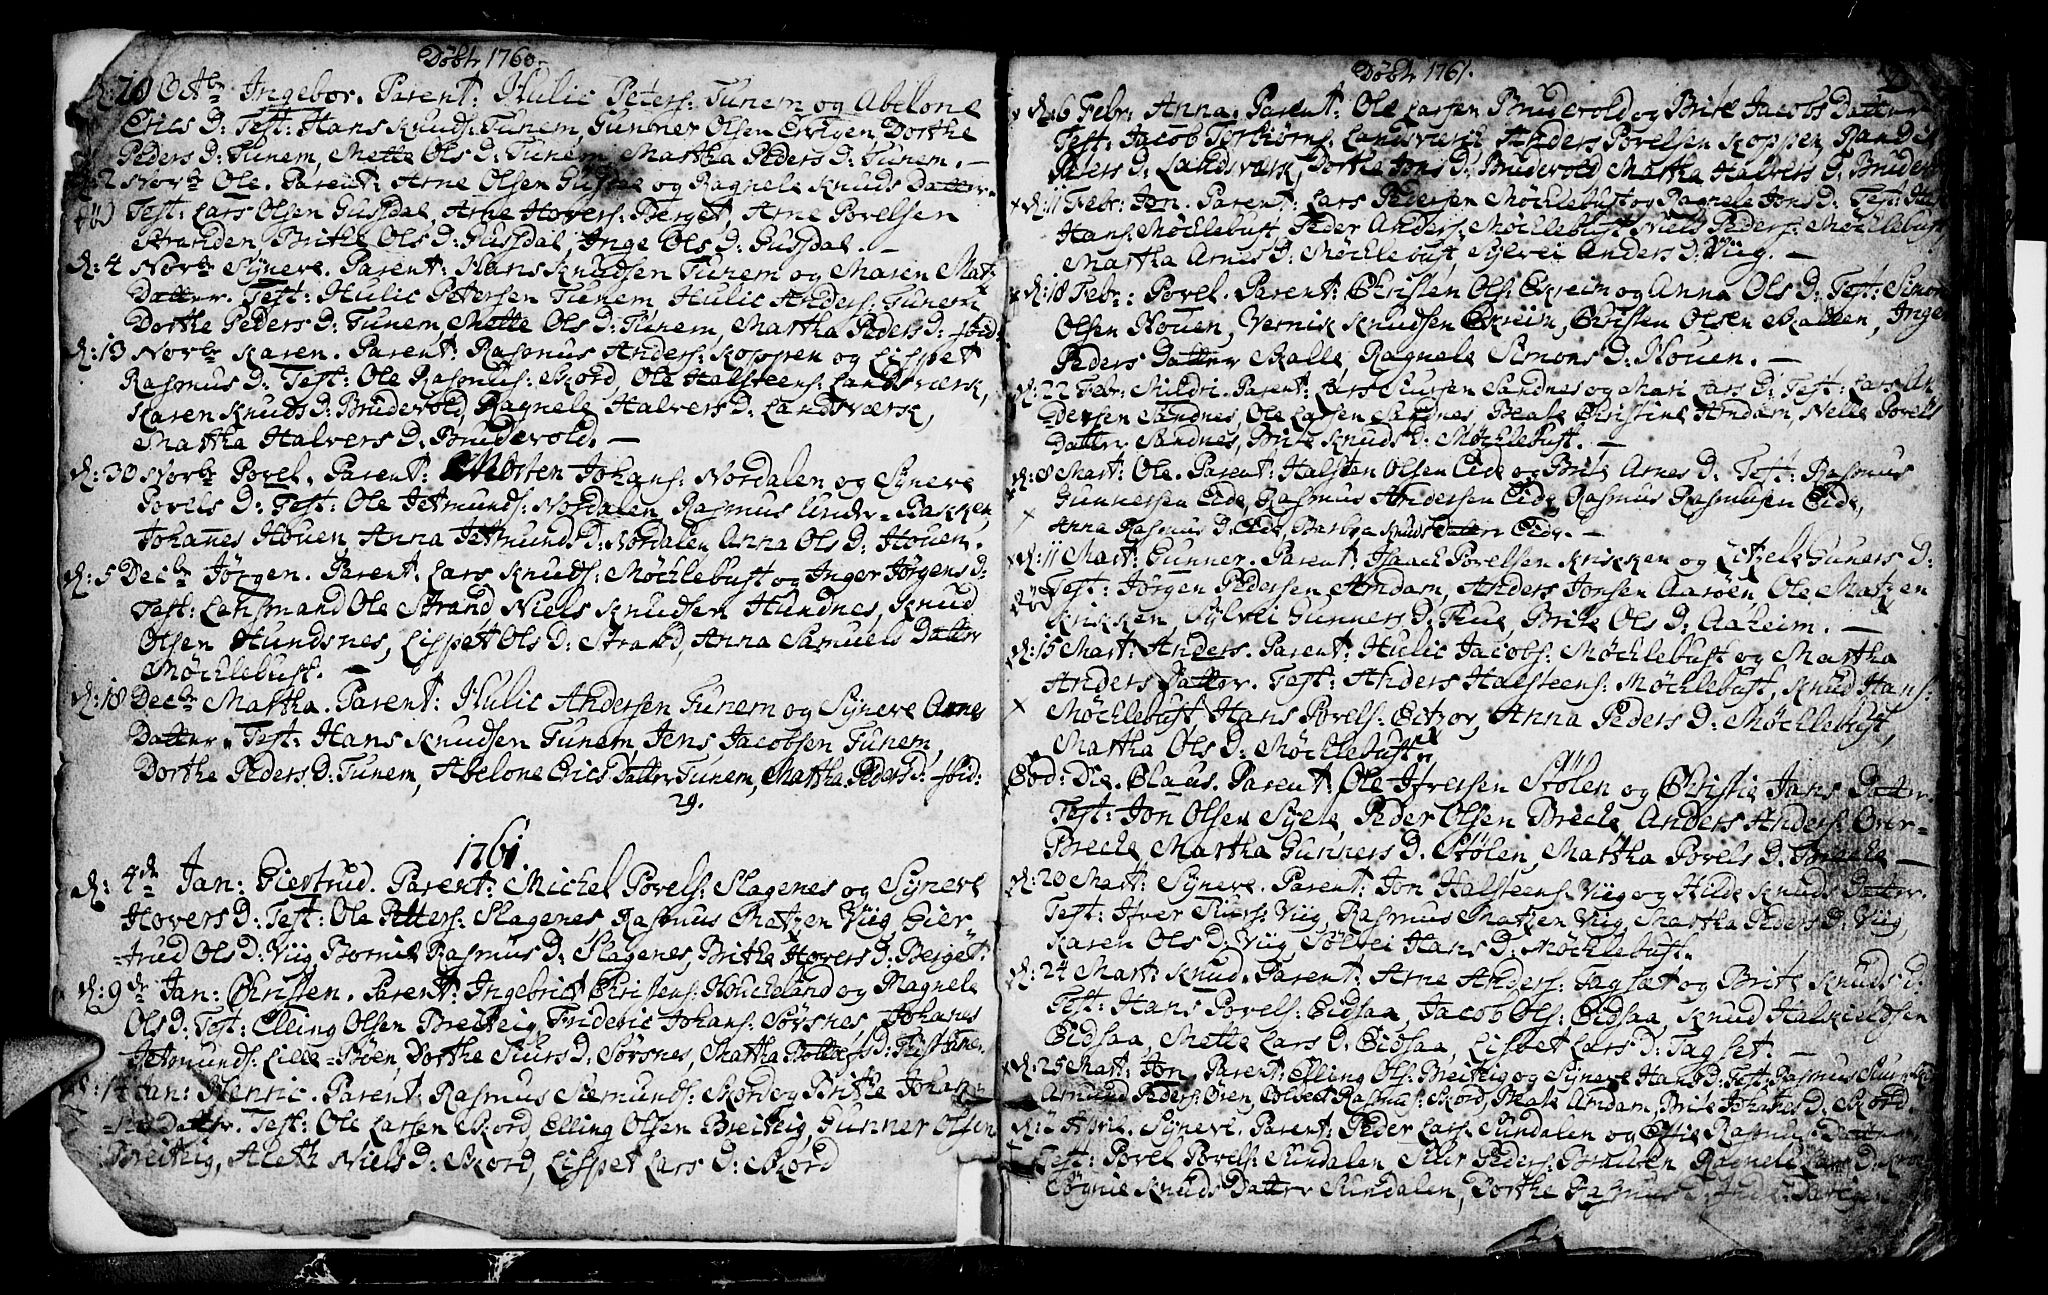 Døbt 1760.
d: 20 Octbr Ingebor. Parent: Hulic Peters: Tunem og Abelone
Erics D: Test: Hans Knuds: Tunem, Gunner Olsen Ervigen, Dorthe
Peders D: Tunem, Mette Ols D: Tunem, Martha Peders D: Tunem. —
2 Novbr Ole. Parent: Arne Olsen Gusdal og Ragnele Knuds Datter.
død Test: Lars Olsen Gusdal, Arne Hovers: Berget, Arne Povelsen
Stranden, Brithe Ols D: Gusdal, Inge Ols D: Gusdal. —
d: 4 Novbr Synere. Parent: Hans Knudsen Tunem og Maren Matz
Datter. Test: Hulic Petersen Tunem, Hulic Anders: Tunem
Dorthe Peders D: Tunem, Mette Ols D: Tunem, Martha Peders D: ibid:
d: 13 Novbr Karen. Parent: Rasmus Anders: Koppen og Lisspet
Rasmus D: Test: Ole Rasmus: Skord, Ole Halsteens: Landsværk,
Karen Knuds D: Brudevold, Ragnele Halvers D: Landsværk,
Martha Halvers D: Brudevold. —
d: 30 Novbr Povel. Parent: Morten Johans: Nordalen og Synere
Povels D: Test: Ole Jetmunds: Nordalen, Rasmus Under-Bakken,
Johannes Houen, Anna Jetmunds D: Nordalen, Anna Ols D: Houen.
d: 5 Decbr Jørgen. Parent: Lars Knuds: Møchlebust og Inger Jørgens D:
Test: Lensmand Ole Strand, Niels Knudsen Hundnes, Knud
Olsen Hundsnes, Lisspet Ols D: Strand, Anna Samuels Datter
Møchlebust. —
d: 18 Decbr Martha. Parent: Hulic Andersen Tunem og Synere Arnes
Datter. Test: Hans Knudsen Tunem, Jens Jacobsen Tunem,
Dorthe Peders D: Tunem, Abelone Erics Datter Tunem, Martha Peders D: ibid:
29.
1761.
d: 4de Jan: Giertrud. Parent: Michel Povels: Slagenes og Synere
Hovers D: Test: Ole Petters: Slagenes, Rasmus Matzen Viig, Gier-
-trud Ols D: Viig, Bornil Rasmus D: Slagenes, Brithe Hovers D: Berget.
d: 9de Jan: Christen. Parent: Ingebrict Christens: Houcheland og Magnele
Ols D: Test: Elling Olsen Breiteig, Frideric Johans: Sørsnes, Johanes
Jetmunds: Lille-Bøen, Dorthe Siurs D: Sørsnes, Martha
d: 14 Jan: Henric. Parent: Rasmus Siemunds: Skord og Brithe Johan-
-nes Datter. Test: Ole Larsen Skord, Elling Olsen Breiteig, Gunner Olsen
Breiteig, Aleth Niels D: Skord, Lisspet Lars D: Skord
Døbt 1761.
d: 6 Febr: Anna. Parent: Ole Larsen Brudevold og Brite Jacobs Datter
Test: Jacob Torbiørns: Landsværk, Anders Povelsen Koppen, Randi
Peders D: Landsværk, Dorthe Jons D: Brudevold, Martha Halvers D: Brudev
d: 11 Febr: Jon. Parent: Lars Pedersen Møchlebust og Ragnele Jons D: Test:
Hans: Møchlebust, Peder Anders: Møchlebust, Niels Peders: Møchlebust,
Martha Arnes D: Møchlebust, Sylvei Anders D: Viig. —
d: 18 Febr: Povel. Parent: Christen Ols: Ekreim og Anna Ols D: Test: Simon
Olsen Houen, Vernik Knudsen Ekreim, Christen Olsen Skallen, Inger
Peders Datter Skalle, Ragnele Simons D: Houen. —
d: 22 Febr: Mildri. Parent: Lars Siursen Sandnes og Mari Lars D: Test: Lars An-
-dersen Sandnes, Ole Larsen Sandnes, Beate Christine Amdam, Nelle Povels
Datter Sandnes, Brite Knuds D: Møchlebust. —
d: 8 Mart: Ole. Parent: Halsten Olsen Eide og Brite Arnes D: Test: Rasmus
Gunnersen Eide, Rasmus Andersen Eide, Rasmus Rasmusen Eide,
Anna Rasmus D: Eide, Barbra Knuds Datter Eide. —
d: 11 Mart: Gunner. Parent: Isaach Povelsen Krikken og Zitzele Guners D:
død Test: Jørgen Pedersen Amdam, Anders Jonsen Aarøen, Ole Matzen
Krikken, Sylvei Gunners D: Thue, Brite Ols D: Aaheim. —
d: 15 Mart: Anders. Parent: Hulic Jacobs: Møchlebust og Martha
Anders Datter. Test: Anders Halsteens: Møchlebust, Knud Hans:
Møchlebust, Hans Povels: Eitror, Anna Peders D: Møchlebust,
Martha Ols D: Møchlebust.
Eod: Die. Claus. Parent: Ole Ifversen Stölen og Christie Jans Datter.
Test: Jon Olsen Syele, Peder Olsen Brecke, Anders Anders: Over-
Brecke, Martha Gunners D: Stölen, Martha Povels D: Brecke —
d: 20 Mart: Synere. Parent: Jon Halsteens: Viig og Hilde Knuds Datter.
Test: Ifver Siurs: Viig, Rasmus Matzen Viig, Martha Peders D: Viig,
Karen Ols D: Viig, Sölvei Hans D: Møchlebust.
d: 24 Mart: Knud. Parent: Arne Anders: Tagsæt og Brite Knuds D:
Test: Hans Povels: Eidsaa, Jacob Ols: Eidsaa, Knud Halkieldsen
Eidsaa, Mette Lars D: Eidsaa, Lisbet Lars D: Tagset. —
d: 25 Mart: Jon. Parent: Elling Ols: Breiteig og Synere Hans D: Test: Rasmus Siurs
Amund Peders: Ören, Rasmus: Skord, Beate Amdam, Brite Johanes D: Skord.
d: 2 April. Synere. Parent: Peder Lars: Sundalen og Rasmus Datter
Test: Povel Povels: Sundalen, Siur Peders: Ragnele Lars D:
Knuds Datter Sundalen, Dorthe Rasmus D: